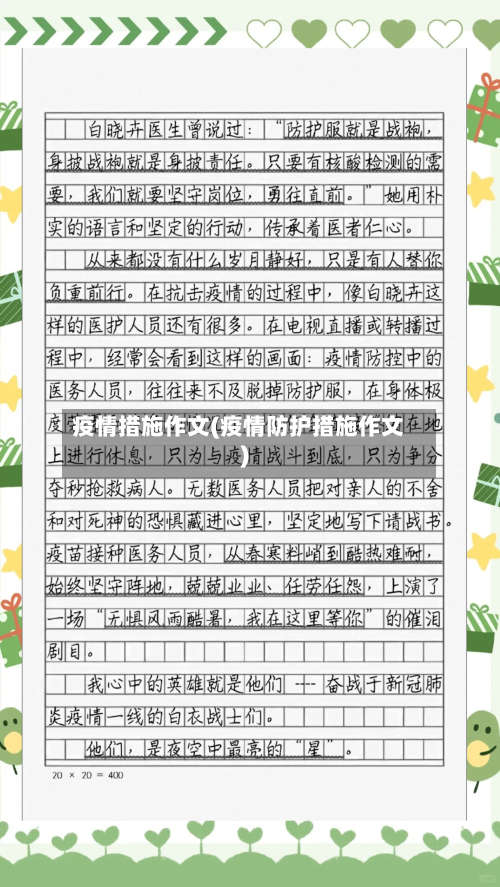 白晓卉医生曾说过：“防护服就是战袍，
身披战袍就是身披责任。只要有核酸检测的需
要，我们就要坚守岗位，勇往直前。”她用朴
实的语言和坚定的行动，传承着医者仁心。
从来都没有什么岁月静好，只是有人替你
负重前行。在抗击疫情的过程中，像白晓卉这
样的医护人员还有很多。在电视直播或转播过
程中，经常会看到这样的画面：疫情防控中的
医务人员，往往来不及脱掉防护服，在身体极
度
在地
疫情措施作文(疫情防护措施作文
)
上进行休息，只为与疫情战斗到底，只为争分
夺秒抢救病人。无数医务人员把对亲人的不舍
和对死神的恐惧藏进心里，坚定地写下请战书。
疫苗接种医务人员，从春寒料峭到酷热难耐，
始终坚守阵地，兢兢业业、任劳任怨，上演了
一场“无惧风雨酷暑，我在这里等你”的催泪
剧目。
我心中的英雄就是他们 ---- 奋战于新冠肺
炎疫情一线的白衣战士们。
他们，是夜空中最亮的“星”。
20 × 20 = 400